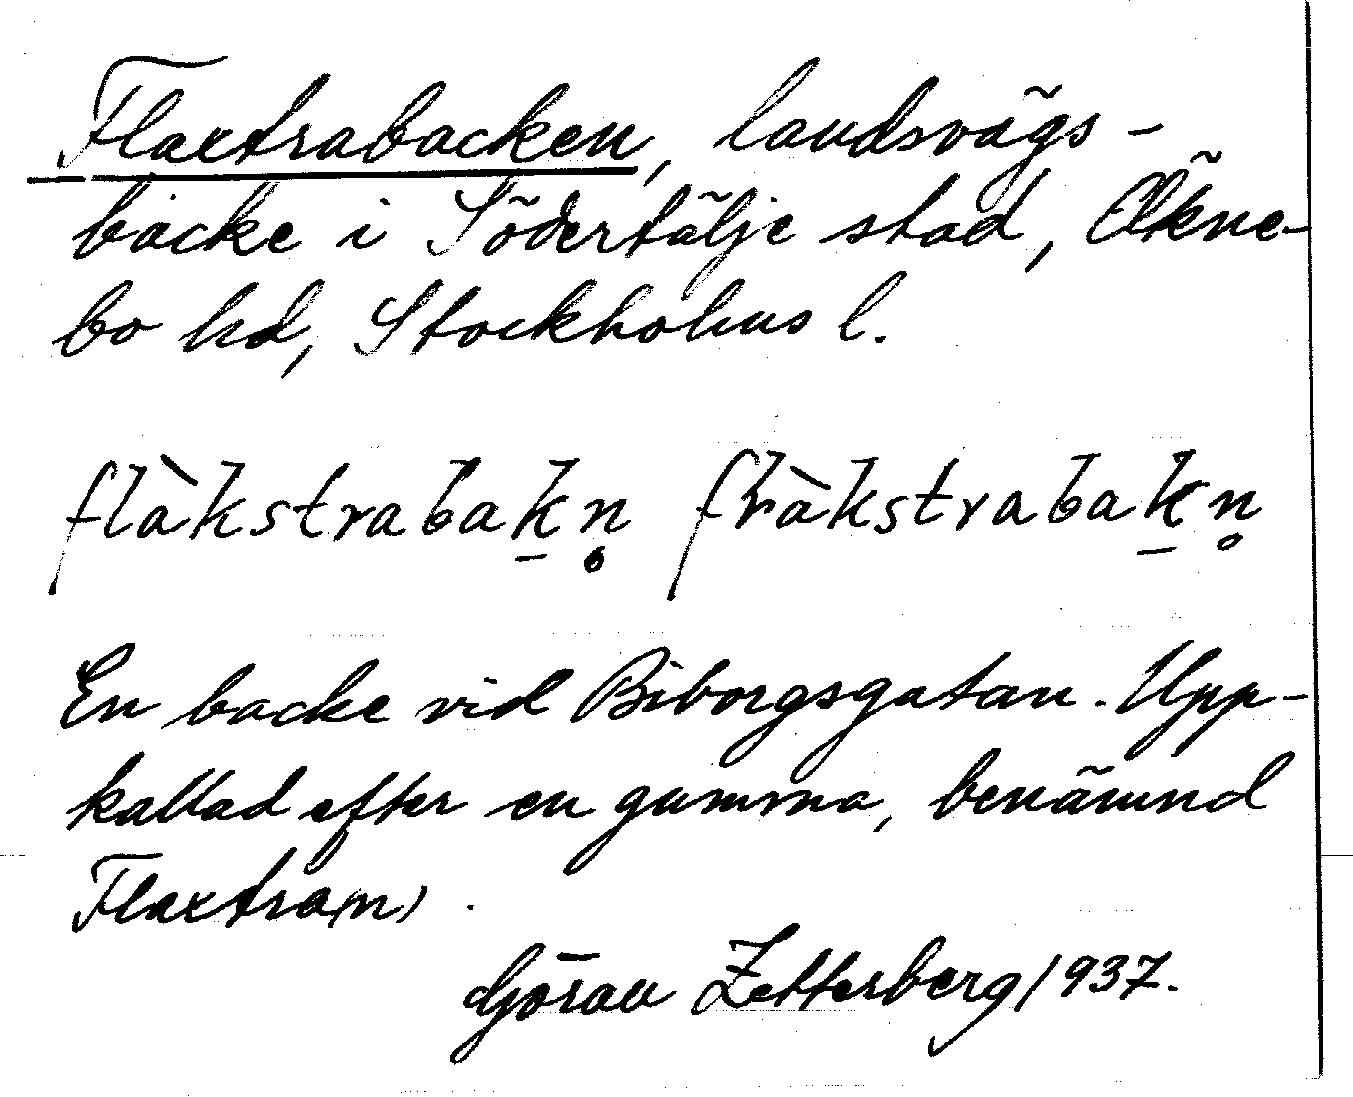 Flaxtrabacken, landsvägs-
backe i Södertälje stad, Ölkne-
bo hd, Stockholms l.
flàkstrabak̠n̥ fràkstrabak̠n̥
En backe vid Biborgsgatan. Upp-
kallad efter en gumma, benämnd
Flaxtra(n).
Göran Zetterberg 1937.